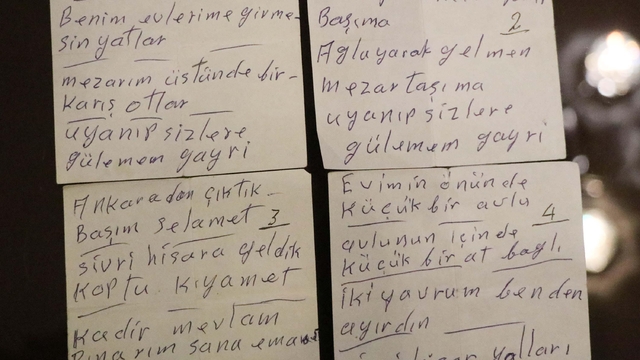 Benim evlerime girme-
sin yatlar
mezarım üstünde bir-
Karış otlar
uyanıp sizlere
gülemem gayri
Başıma
2
Ağlayarak gelmen
mezar taşıma
uyanıp sizlere
gülemem gayri
Ankaradan çıktık-
Başım selamet 3
sivri hisara geldik
Koptu Kıyamet
Kadir mevlam
Pınarım sana emanet
Evimin önünde
Küçük bir avlu
4
avlunun içinde
Küçük bir at bağlı
iki yavrum benden
ayırdın
yolları